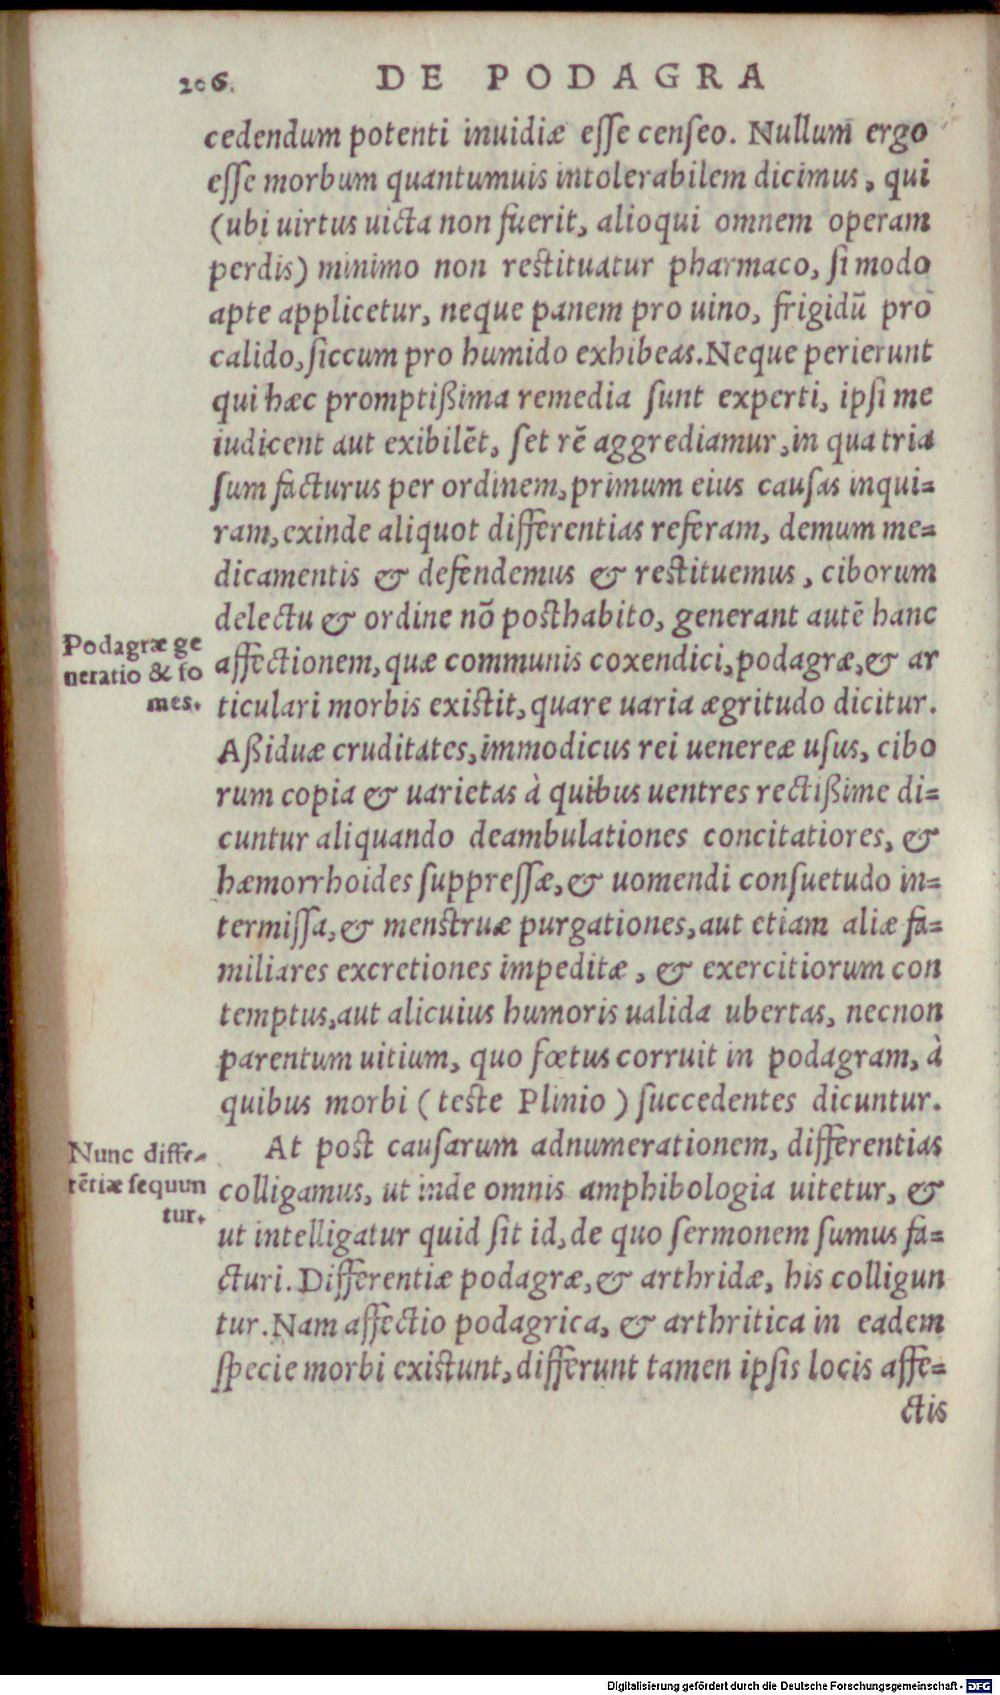 206. DE PODAGRA
cedendum potenti inuidiæ eſſe cenſeo. Nullum ergo
eſſe morbum quantumuis intolerabilem dicimus, qui
(ubi uirtus uicta non fuerit, alioqui omnem operam
perdis) minimo non reſtituatur pharmaco, ſi modo
apte applicetur, neque panem pro uino, frigidū pro
calido, ſiccum pro humido exhibeas. Neque perierunt
qui hæc promptißima remedia ſunt experti, ipſi me
iudicent aut exibilēt, ſet rē aggrediamur, in qua tria
ſum facturus per ordinem, primum eius cauſas inqui=
ram, exinde aliquot differentias referam, demum me=
dicamentis & defendemus & reſtituemus, ciborum
delectu & ordine nō poſthabito, generant autē hanc
Podagræ ge
neratio & fo
mes.
affectionem, quæ communis coxendici, podagræ, & ar
ticulari morbis exiſtit, quare uaria ægritudo dicitur.
Aßiduæ cruditates, immodicus rei uenereæ uſus, cibo
rum copia & uarietas à quibus uentres rectißime di=
cuntur aliquando deambulationes concitatiores, &
hæmorrhoides ſuppreſſæ, & uomendi conſuetudo in=
termiſſa, & menſtruæ purgationes, aut etiam aliæ fa=
miliares excretiones impeditæ, & exercitiorum con
temptus, aut alicuius humoris ualida ubertas, necnon
parentum uitium, quo fœtus corruit in podagram, à
quibus morbi (teſte Plinio) ſuccedentes dicuntur.
Nunc diffe-
rētiæ ſequun
tur.
At poſt cauſarum adnumerationem, differentias
colligamus, ut inde omnis amphibologia uitetur, &
ut intelligatur quid ſit id, de quo ſermonem ſumus fa=
cturi. Differentiæ podagræ, & arthridæ, his colligun
tur. Nam affectio podagrica, & arthritica in eadem
ſpecie morbi exiſtunt, differunt tamen ipſis locis affe=
ctis
Digitalisierung gefördert durch die Deutsche Forschungsgemeinschaft - DFG